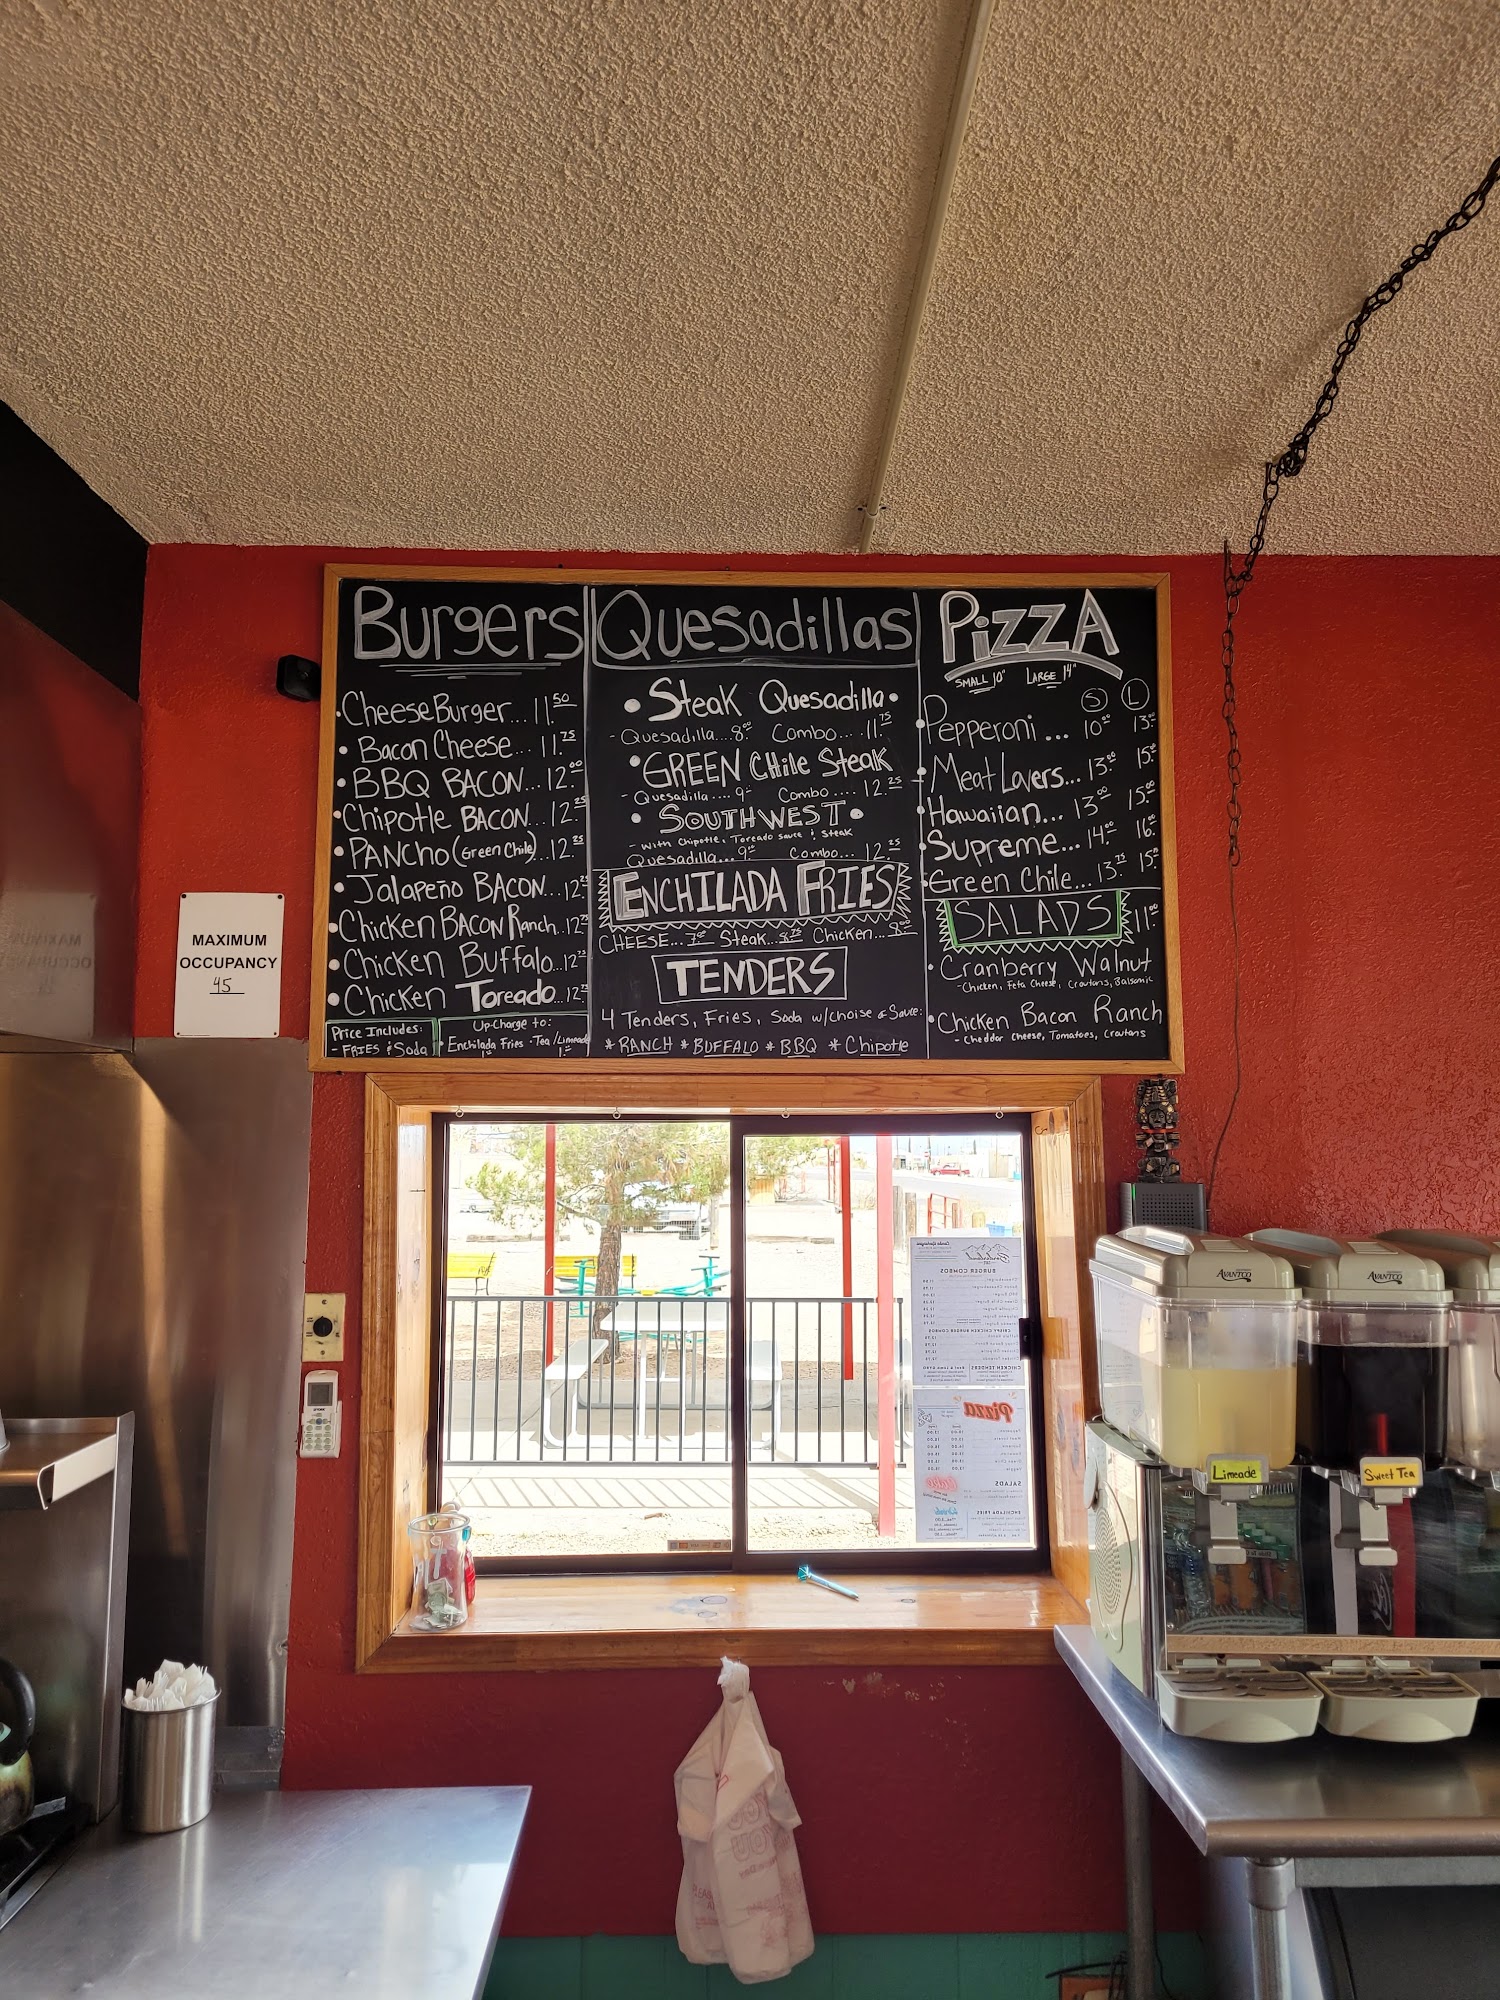 Burgers
CheeseBurger... 11.50
Bacon Cheese... 11.75
BBQ BACON... 12.00
Chipotle BACON... 12.25
PANCHO (Green Chile)... 12.25
Jalapeño BACON... 12.25
Chicken BACON Ranch... 12.75
Chicken Buffalo... 12.75
Chicken Toreado... 12.75
Price Includes:
- FRIES & Soda
Up-Charge to:
Enchilada Fries · Tea / Limeade
Quesadillas
Steak Quesadilla
- Quesadilla.... 8. Combo.... 11.75
GREEN Chile Steak
- Quesadilla.... 9. Combo.... 12.25
SOUTHWEST
- with Chipotle, Toreado sauce & steak
Quesadilla... 9. Combo... 12.25
ENCHILADA FRIES
CHEESE... 7. Steak... 8.75 Chicken... 8.
TENDERS
4 Tenders, Fries, Soda w/choise of Sauce:
* RANCH * BUFFALO * BBQ * Chipotle
PiZZA
SMALL 10" LARGE 14"
S L
Pepperoni ... 10.00 13.00
Meat Lovers... 13.00 15.00
Hawaiian... 13.00 15.00
Supreme... 14.00 16.00
Green Chile... 13.75 15.
SALADS 11.00
Cranberry Walnut
- Chicken, Feta Cheese, Croutons, Balsamic
Chicken Bacon Ranch
- Cheddar Cheese, Tomatoes, Croutons
MAXIMUM
OCCUPANCY
45
BURGER COMBOS
CRISPY CHICKEN BURGER COMBOS
CHICKEN TENDERS
Pizza
SALADS
ENCHILADA FRIES
AVANTCO
AVANTCO
Limeade
Sweet Tea